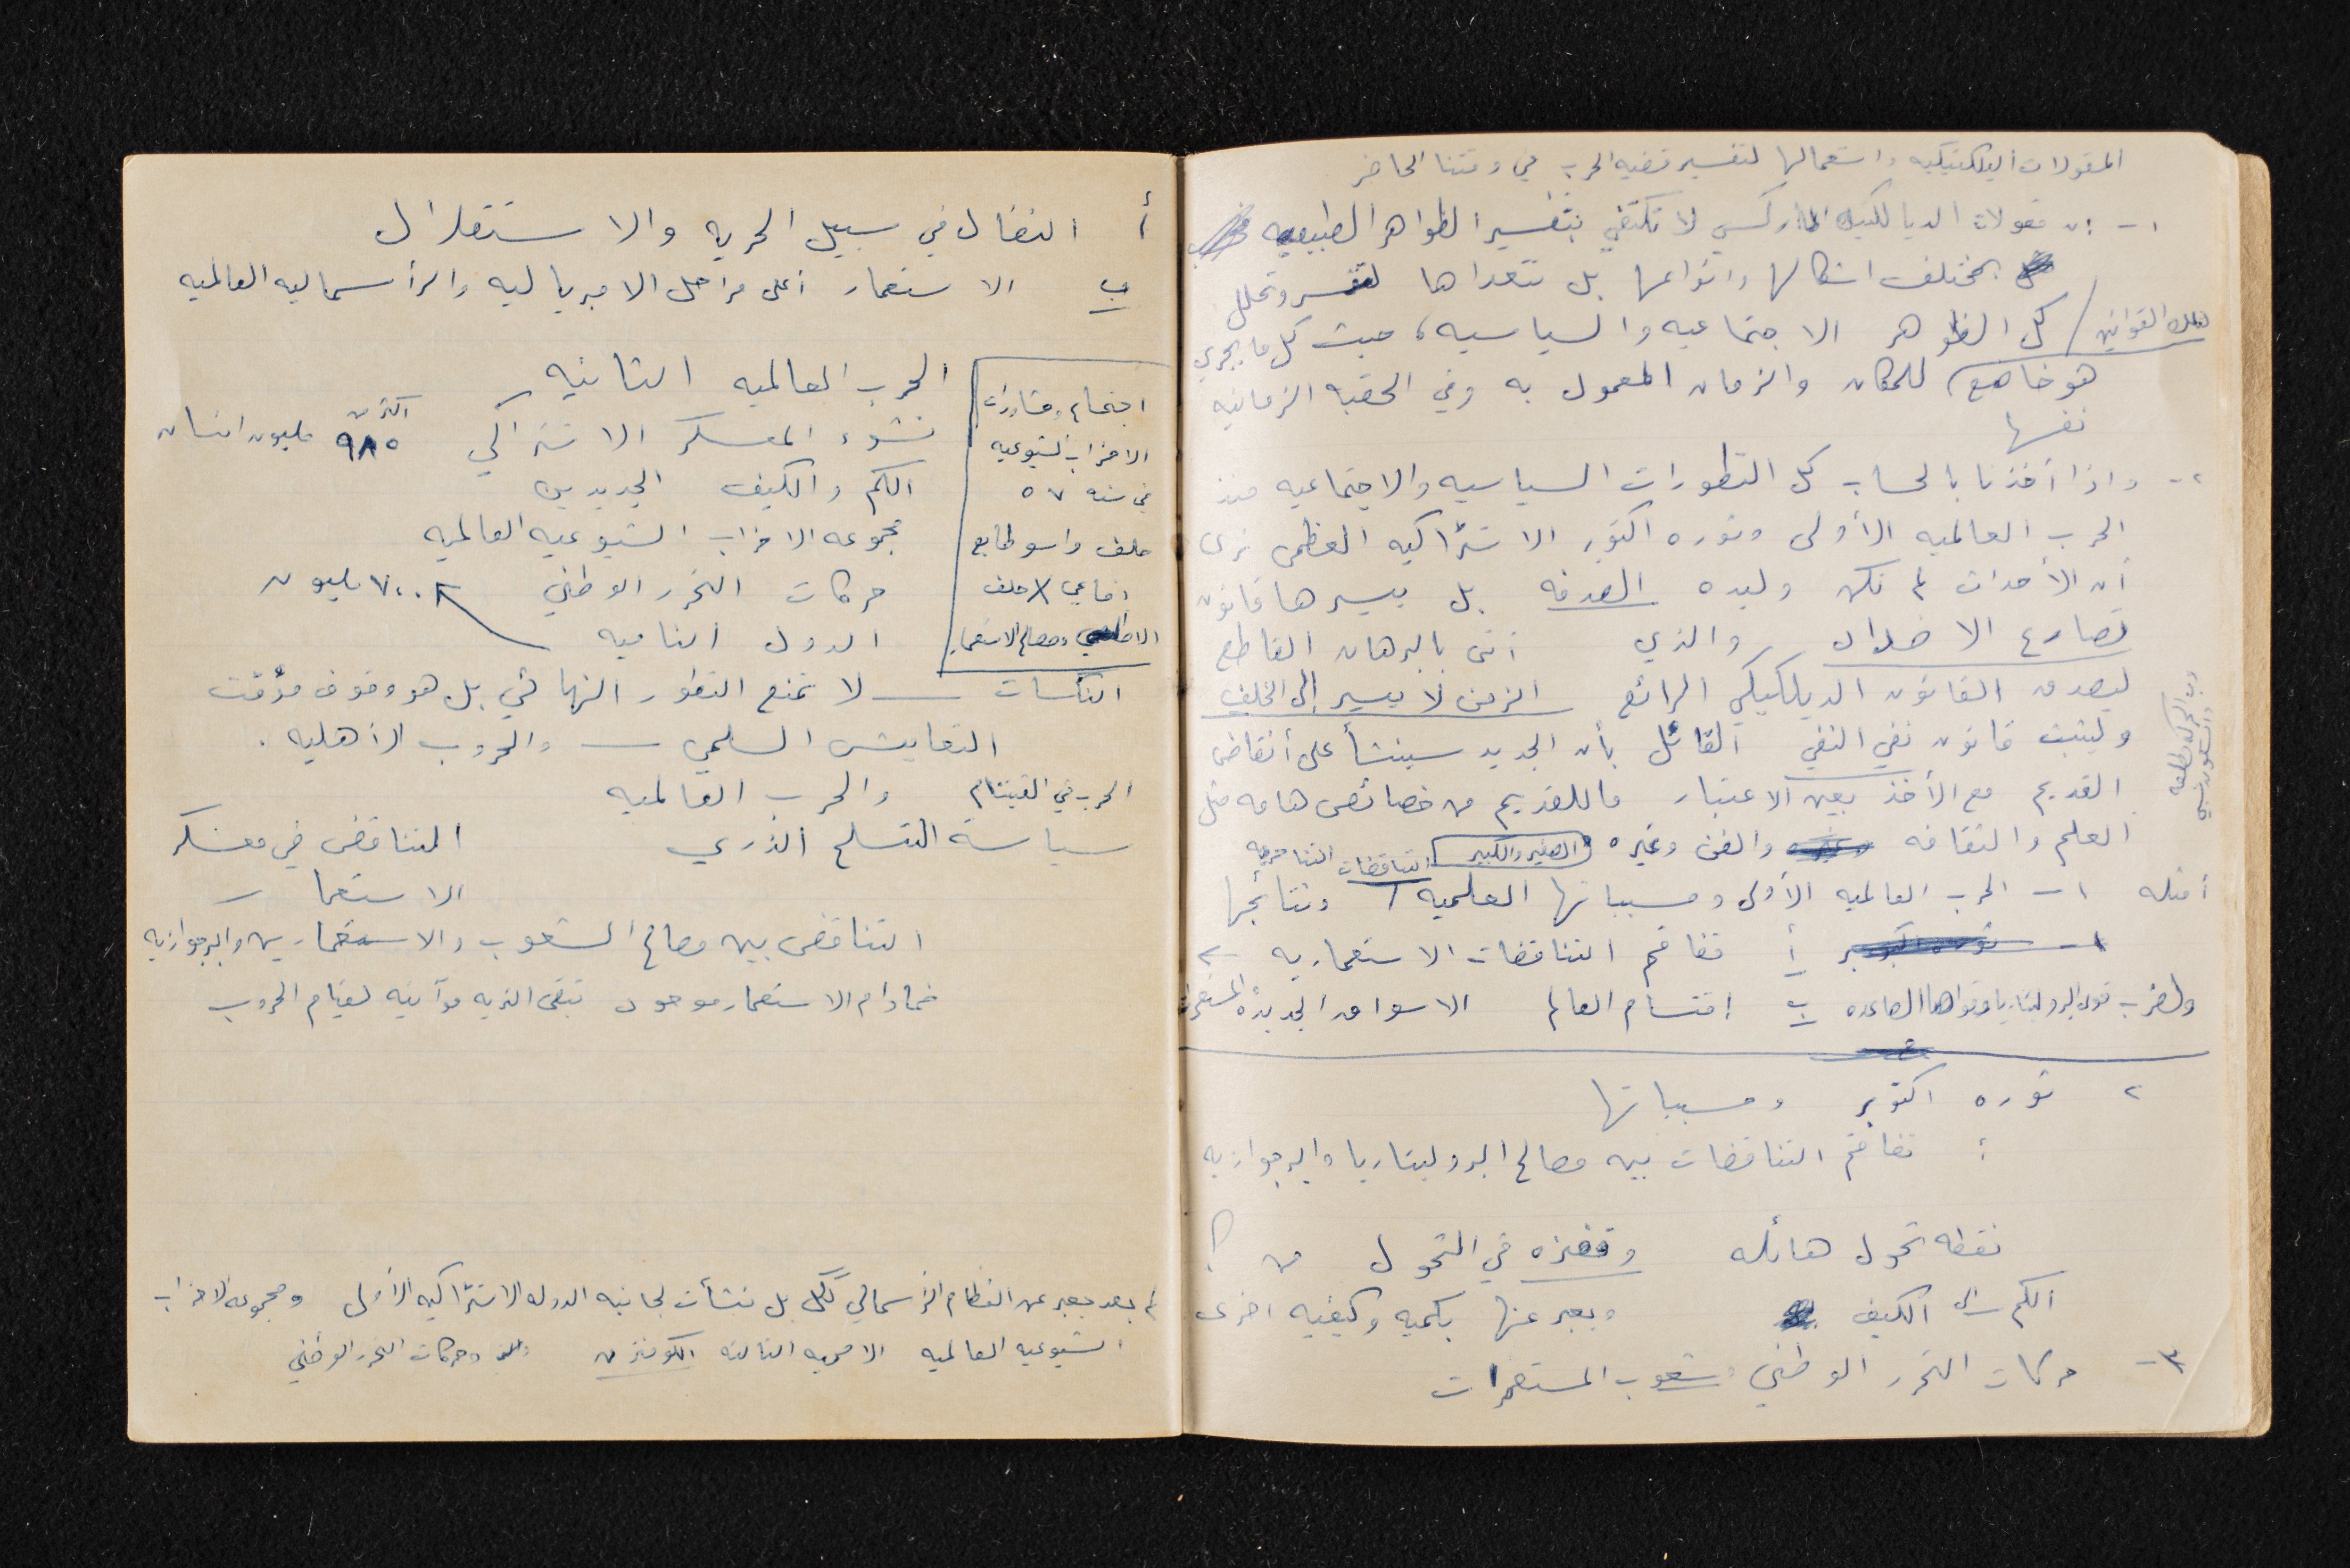 المقولات اليالكتيكيه واستعمالها لتفسير قضيه الحرب في وقتنا الحاضر
١- ان مقولات الديالكتيك الماركسي لا تكتفي بتفسير الظواهر الطبيعيه
بمختلف اشكالها وانواعها بل تتعداها لتفسر وتحلل
كل الظواهر الاجتماعيه والسياسيه، حيث كل ما يجري
هو خاضع لتلك القوانين للمكان والزمان المعمول به وفي الحقبه الزمانيه
نفسها
٢- واذا أخذنا بالحساب كل التطورات السياسيه والاجتماعيه منذ
الحرب العالميه الأولى وثوره اكتوبر الاشتراكيه العظمى نرى
أن الأحداث لم تكن وليده الصدفه بل يسيرها قانون
تصارع الاضداد والذي أتى بالبرهان القاطع
ليصدق القانون الديلكتيكي الرائع الزمن لا يسير إلى الخلف
وليثبت قانون نفي النفي القائل بأن الجديد سينشأ على أنقاض
القديم مع الأخذ بعين الاعتبار ما للقديم من خصائص هامه مثل
العلم والثقافه والفن وغيره الصغير والكبير
التناقضات التناحريه
أمثله ١- الحرب العالميه الأولى ومسبباتها العلميه ونتائجها
أ تفاقم التناقضات الاستعماريه
ولضرب قوى البروليتاريا وقواها الصاعده ب اقتسام العالم الاسواق الجديده المستعمرات
٢ ثوره اكتوبر ومسبباتها
أ تفاقم التناقضات بين مصالح البروليتاريا والبرجوازيه
نقطه تحول هائله وقفزه في التحول من
الكم الى الكيف ويعبر عنها بكميه وكيفيه اخرى
٣- حركات التحرر الوطني وشعوب المستعمرات
أ النضال في سبيل الحريه والاستقلال
ب الاستعمار أعلى مراحل الامبرياليه والرأسماليه العالميه
الحرب العالميه الثانيه
نشوء المعسكر الاشتراكي اكثر من ٩٨٥ مليون انسان
الكم والكيف الجديدين
مجموعه الاحزاب الشيوعيه العالميه
حركات التحرر الوطني ٧٠٠ مليون
الدول الناميه
اجتماع ومشاورات
الاحزاب الشيوعيه
في سنه ٥٧
حلف وارسو طابع
دفاعي / حلف
الاطلسي ومصالح الاستعمار
النكسات — لا تمنع التطور النهائي بل هو وقوف مؤقت
التعايش السلمي — والحروب الأهليه.
الحرب في الفيتنام والحرب العالميه
سياسة التسلح الذري التناقض في معسكر
الاستعمار
التناقض بين مصالح الشعوب والاستعماريين والبرجوازيه
فما دام الاستعمار موجود تبقى التربه مؤاتيه لقيام الحروب
لم يعد يعبر عن النظام الرأسمالي ككل بل نشأت لجانبه الدوله الاشتراكيه الأولى ومجموعه الاحزاب
الشيوعيه العالميه الامميه الثالثه الكومنترن وحركات التحرر الوطني